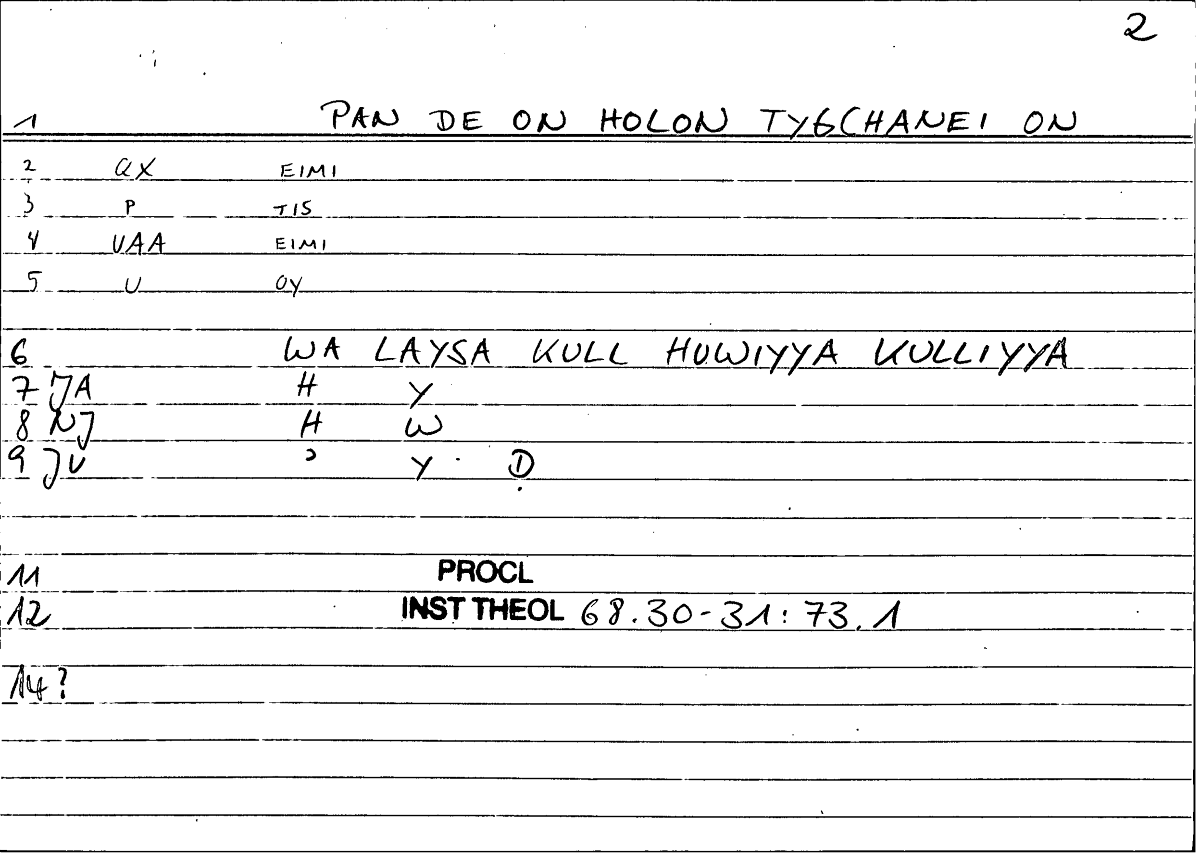 2
1 PAN DE ON HOLON TYGCHANEI ON
2 QX EIMI
3 P TIS
4 VAA EIMI
5 U OY
6 WA LAYSA KULL HUWIYYA KULLIYYA
7 JA H Y
8 NJ H W
9 JU ʾ Y Ḍ
11 PROCL
12 INST THEOL 68.30-31: 73.1
14?